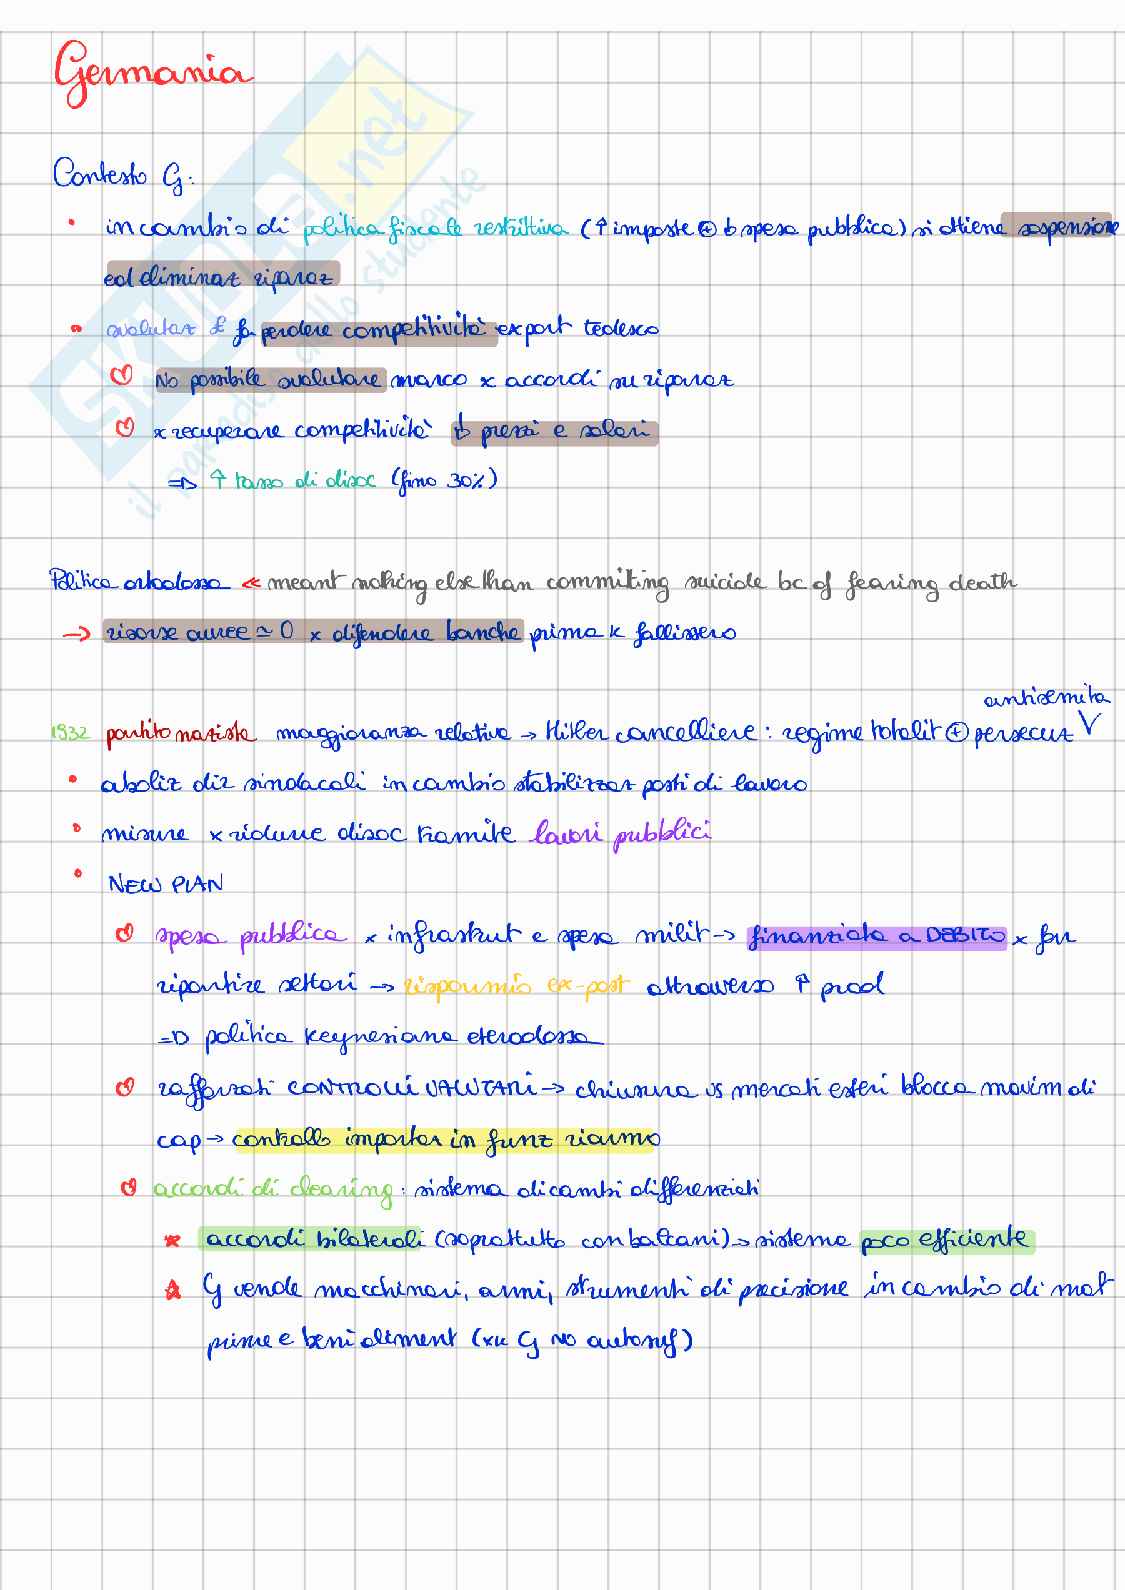 Germania
Contesto G:
• in cambio di politica fiscale restrittiva (↑ imposte ⊕ ↓ spesa pubblica) si ottiene sospensione
ed eliminaz riparaz
• svalutaz £ fa perdere competitività export tedesco
No possibile svalutare marco x accordi su riparaz
x recuperare competitività ↓ prezzi e salari
⇒ ↑ tasso di disoc (fino 30%)
Politica ortodossa « meant nothing else than commiting suicide bc of fearing death
→ risorse auree ≃ 0 x difendere banche prima k fallissero
antisemita
1932 partito nazista maggioranza relativa → Hitler cancelliere: regime totalit ⊕ persecuz V
• aboliz dir sindacali in cambio stabilizzaz posti di lavoro
• misure x ridurre disoc tramite lavori pubblici
• NEW PLAN
spesa pubblica x infrastrut e spesa milit → finanziata a DEBITO x far
ripartire settori → risparmio ex-post attraverso ↑ prod
⇒ politica keynesiana eterodossa
rafforzati CONTROLLI VALUTARI → chiusura vs mercati esteri blocca movim di
cap → controllo importaz in funz riarmo
accordi di clearing: sistema di cambi differenziati
accordi bilaterali (soprattutto con balcani) → sistema poco efficiente
G vende macchinari, armi, strumenti di precisione in cambio di mat
prime e beni aliment (xk G NO autosuf)
SKUOLA.net
il paradiso dello studente